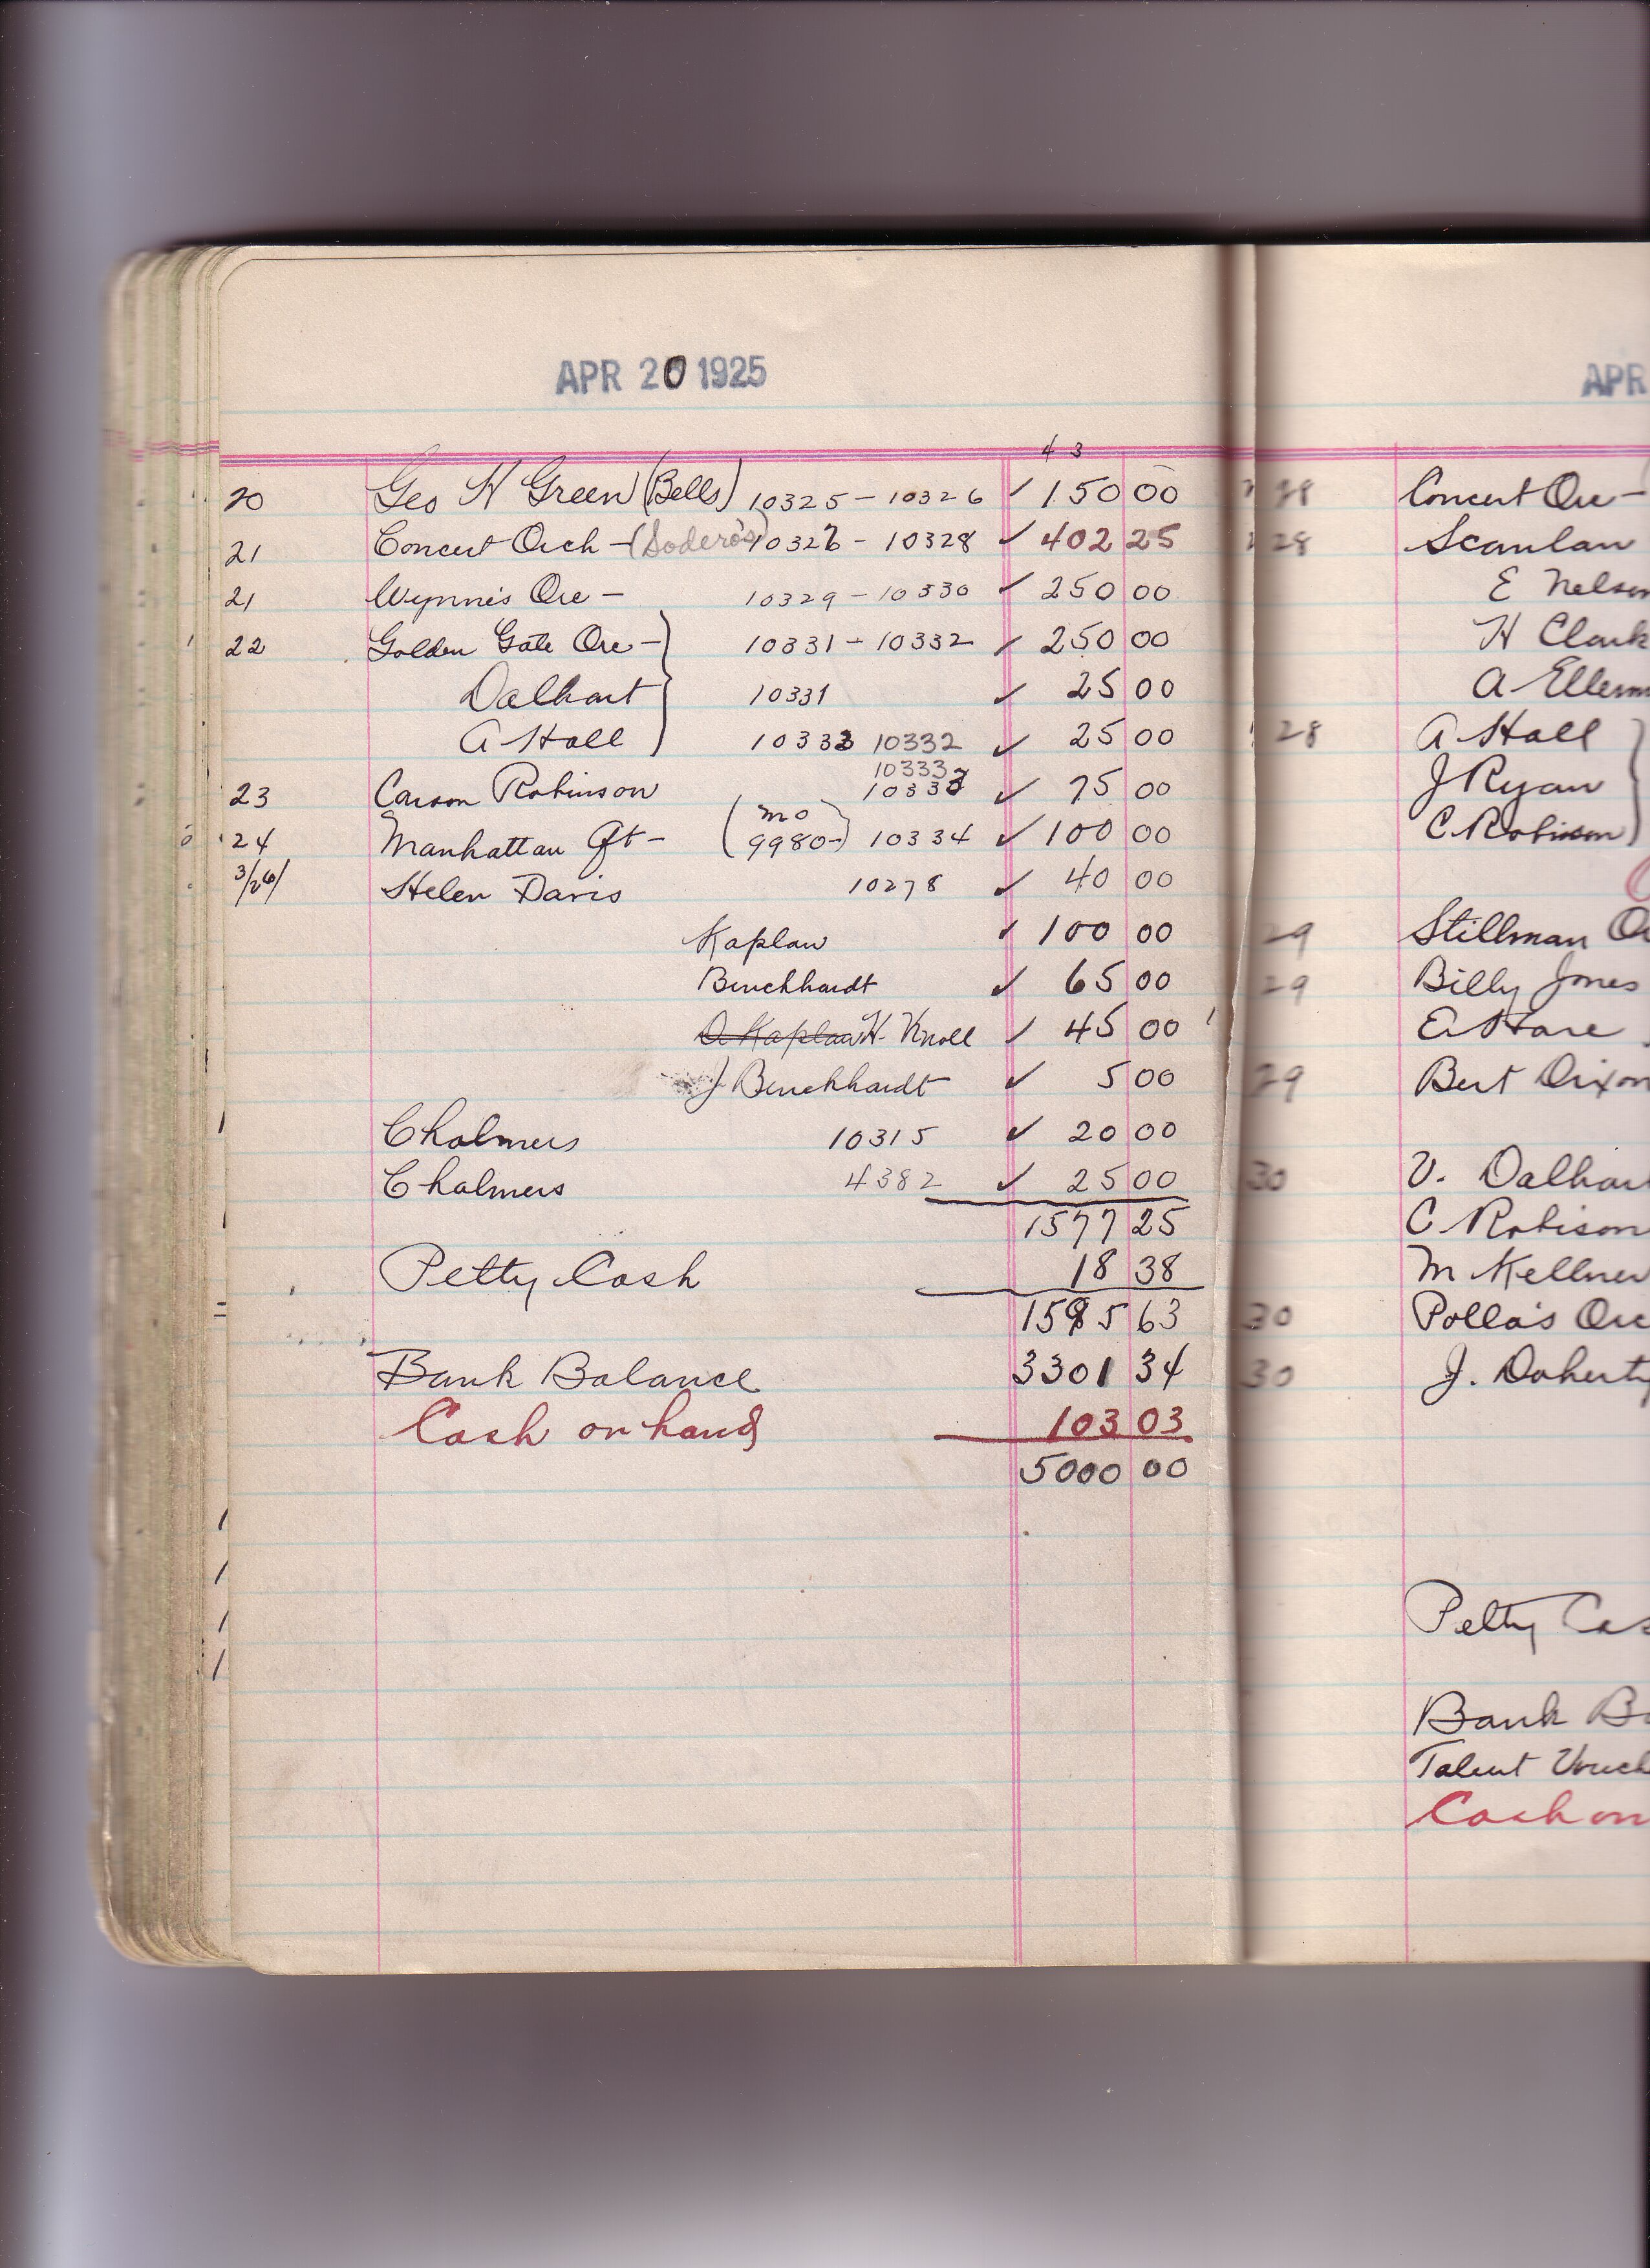 APR 20 1925
4 3
20 Geo H Green (Bells) 10325 - 10326 ✓ 150 00
21 Concert Orch - (Sodero's) 10327 - 10328 ✓ 402 25
21 Wynne's Orc - 10329 - 10330 ✓ 250 00
22 Golden Gate Orc - 10331 - 10332 ✓ 250 00
Dalhart 10331 ✓ 25 00
A Hall 10332 10332 ✓ 25 00
10333
23 Carson Robinson 10333 ✓ 75 00
24 Manhattan Qt - (mo 9980-) 10334 ✓ 100 00
3/26/ Helen Davis 10278 ✓ 40 00
Kaplan ✓ 100 00
Burckhardt ✓ 65 00
A Kaplan H. Knoll ✓ 45 00
J Burckhardt ✓ 5 00
Chalmers 10315 ✓ 20 00
Chalmers 4382 ✓ 25 00
1577 25
Petty Cash 18 38
1595 63
Bank Balance 3301 34
Cash on hand 103 03
5000 00
APR
28 Concert Orc -
28 Scanlan
E Nelson
H Clark
A Ellerm
28 A Hall
J Ryan
C Robison
29 Stillman Or
29 Billy Jones
E Hare
29 Bert Dixon
30 V. Dalhar
C Robison
M Kellner
30 Polla's Orc
30 J. Doherty
Petty Cas
Bank Ba
Talent Vouch
Cash on